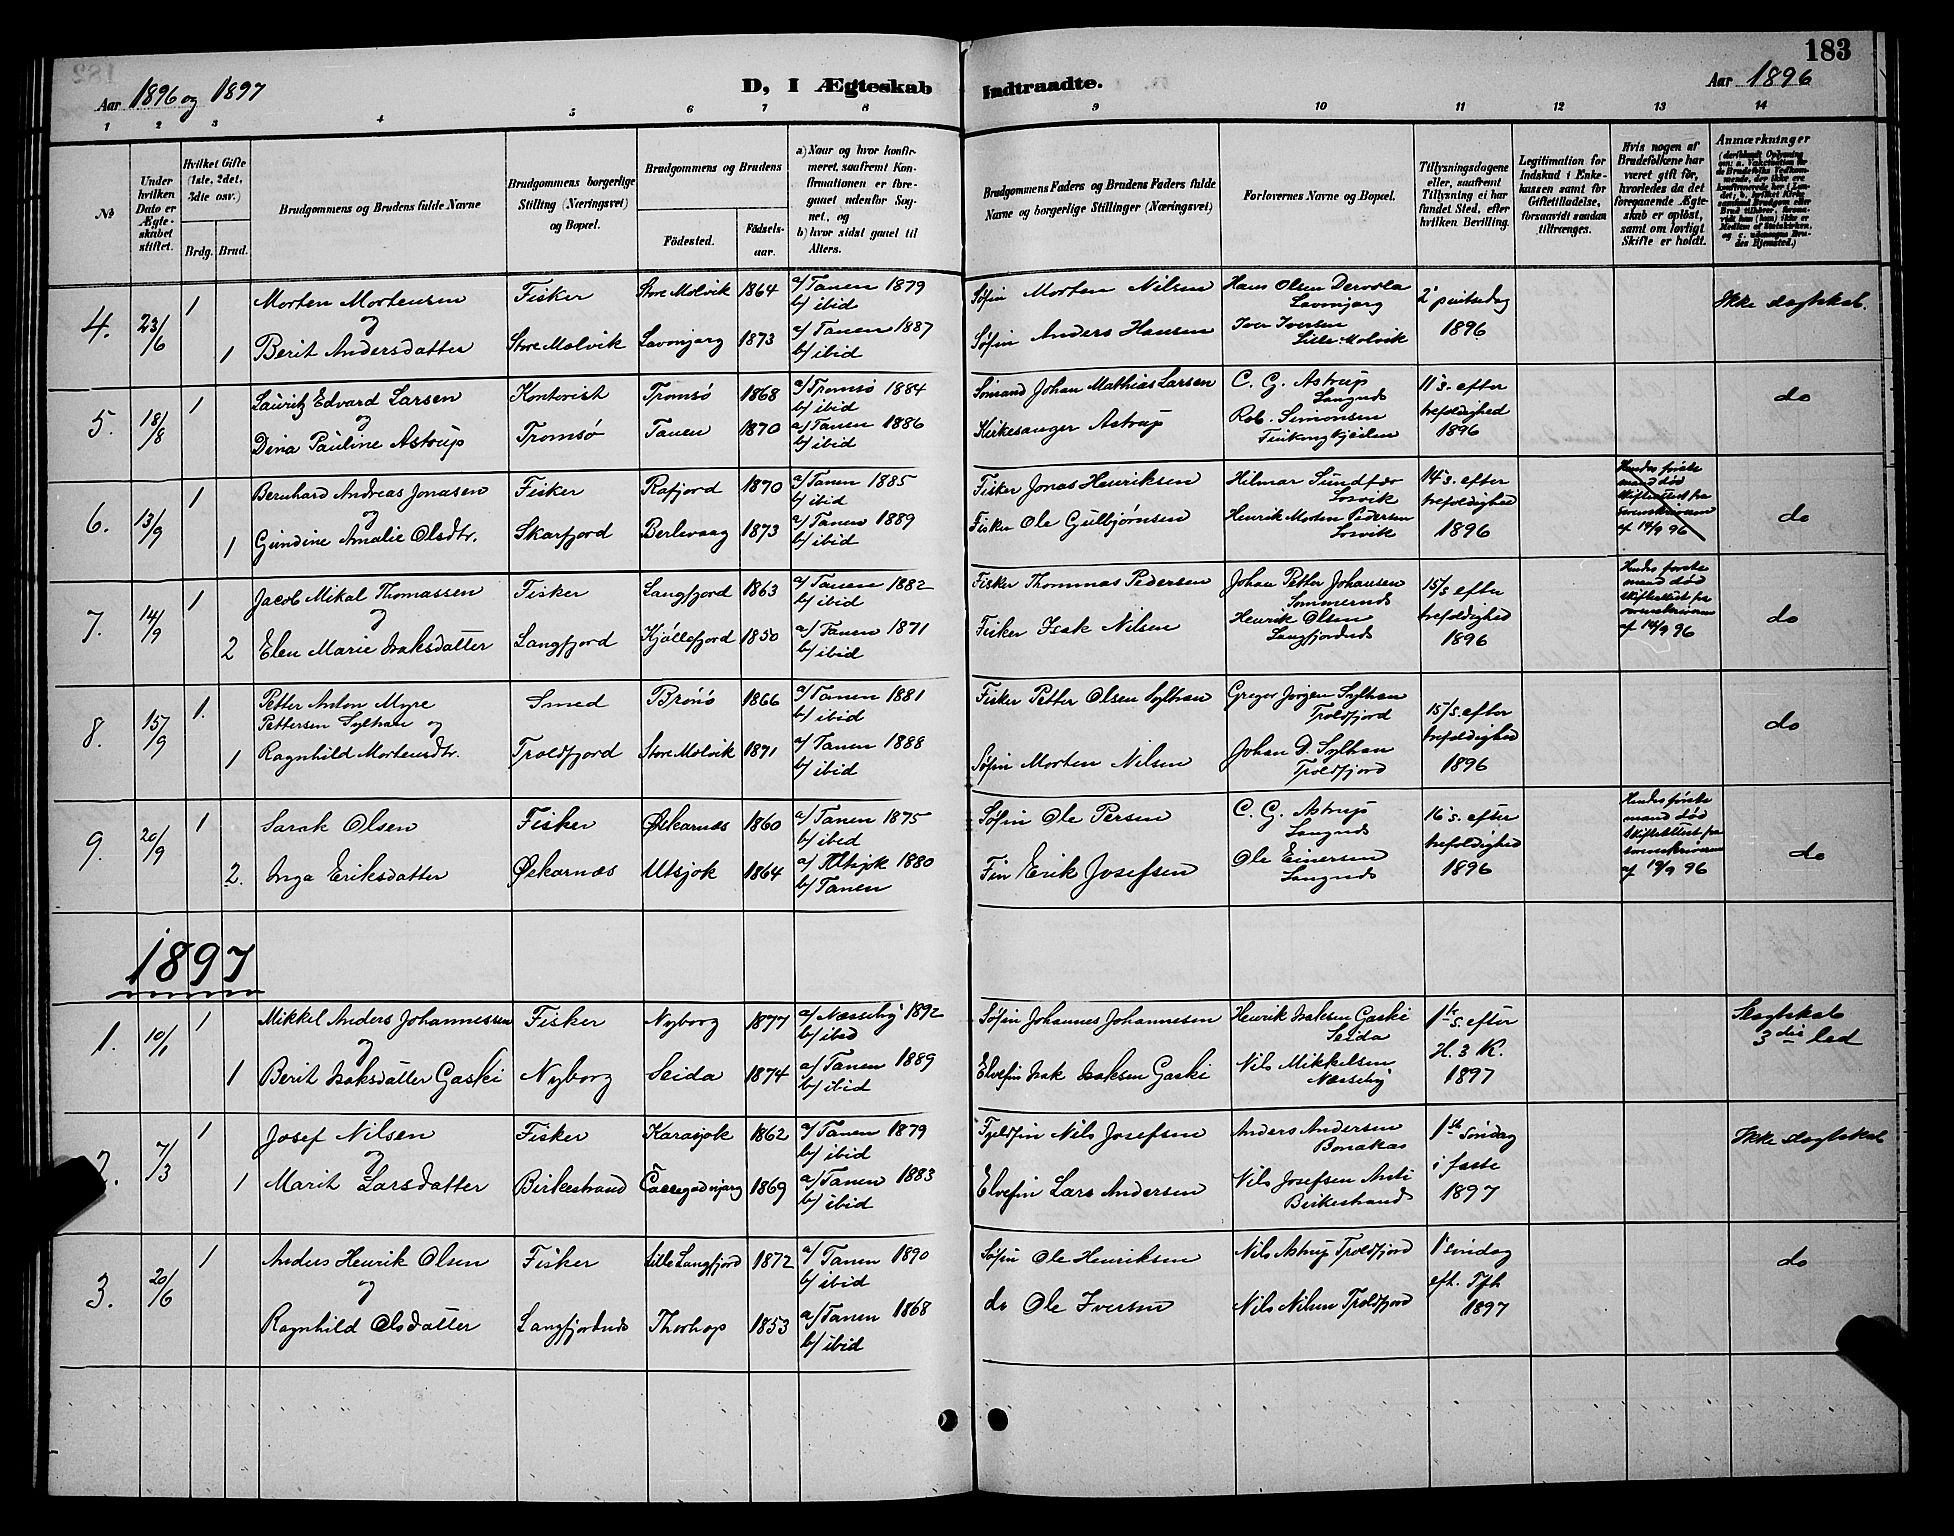 183
Aar 1896 og 1897
D, I Ægteskab Indtraadte.
Aar 1896
1 2 3 4 5 6 7 8 9 10 11 12 13 14
№
Under hvilken Dato er Ægteskabet stiftet.
Hvilket Gifte (1ste, 2det, 3dte osv.)
Brdg. Brud.
Brudgommens og Brudens fulde Navne
Brudgommens borgerlige Stilling (Næringsvei) og Bopæl.
Brudgommens og Brudens
Födested.
Födselsaar.
a) Naar og hvor konfirmeret, saafremt Konfirmationen er foregaaet udenför Sognet, og
b) hvor sidst gaaet til Alters.
Brudgommens Faders og Brudens Faders fulde Navne og borgerlige Stillinger (Næringsvei)
Forlovernes Navne og Bopæl.
Tillysningsdagene eller, saafremt Tillysning ei har fundet Sted, efter hvilken Bevilling.
Legitimation for Indskud i Enkekassen samt for Giftetilladelse, forsaavidt saadan tiltrænges.
Hvis nogen af Brudefolkene har været gift för, hvorledes da det foregaaende Ægteskab er oplöst, samt om lovligt Skifte er holdt.
Anmærkninger
4. 23/6 1 Morten Mortensen Fisker Store Molvik 1864 a/ Tanen 1879 b/ ibid Søfin Morten Nilsen Hans Olsen Lavonjarg 2' pintsedag 1896 Ikke slegtskab.
og
1 Berit Andersdatter Store Molvik Lavonjarg 1873 a/ Tanen 1887 b/ ibid Søfin Anders Hansen Iver Iversen Lille Molvik
5. 18/8 1 Lauritz Edvard Larsen Kontorist Tromsø 1868 a/ Tromsø 1884 b/ ibid Sømand Johan Mathias Larsen C. G. Astrup Langnes 11' s. efter trefoldighed 1896 do
og
Dina Pauline Astrup Tromsø Tanen 1870 a/ Tanen 1886 b/ ibid Kirkesanger Astrup Rob. Simonsen
6. 13/9 1 Bernhard Andreas Jonasen Fisker Rafjord 1870 a/ Tanen 1885 b/ ibid Fisker Jonas Henriksen Hilmar Losvik 14' s. efter trefoldighed 1896 Hendes første mand død skifteattest fra sorenskriveren af 14/9 96 do
og
1 Gundine Amalie Olsdtr. Skarfjord Berlevaag 1873 a/ Tanen 1889 b/ ibid Fisker Ole Gulbjørnsen Henrik Morten Pedersen Losvik
7. 14/9 1 Jacob Mikal Thomassen Fisker Langfjord 1863 a/ Tanen 1882 b/ ibid Fisker Thommas Pedersen Johan Petter Johansen Sommernes 15/s efter trefoldighed 1896 Hendes første mand død skifteattest fra sorenskriveren af 14/9 96 do
og
2 Elen Marie Isaksdatter Langfjord Kjøllefjord 1850 a/ Tanen 1871 b/ ibid Fisker Isak Nilsen Henrik Olsen Langfjordnes
8. 15/9 1. Petter Anton Myre Pettersen Sylthan og Smed Brønø 1866 a/ Tanen 1881 b/ ibid Fisker Petter Olsen Sylthan Gregor Jørgen Sylthan Troldfjord 15/s. efter trefoldighed 1896 do
1 Ragnhild Mortensdtr. Troldfjord Store Molvik 1871 a/ Tanen 1888 b/ ibid Søfin Morten Nilsen Johan D. Sylthan Troldfjord
9. 20/9 1 Sarak Olsen Fisker Øskarnæs 1860 a/ Tanen 1875 b/ ibid Søfin Ole Persen C. G. Astrup Langnes 16' s. efter trefoldighed 1896 Hendes første mand død skifteattest fra sorenskriveren af 19/9 96 do
2. Inga Eriksdatter Øskarnæs Utsjok 1864 a/ Utsjok 1880 b/ Tanen Fin Erik Josefsen Ole Einersen Langnes
1897
1. 10/1 1 Mikkel Anders Johannessen Fisker Nyborg 1877 a/ Nesseby 1892 b/ ibid Søfin Johannes Johannesen Henrik Isaksen Gaski Seida 1ste s. efter H. 3 K. 1897 Slegtskab 3die led
og
1 Berit Isaksdatter Gaski Nyborg Seida 1874 a/ Tanen 1889 b/ ibid Elvefin Isak Isaksen Gaski Nils Mikkelsen Nesseby
2. 7/3 1 Josef Nilsen Fisker Karasjok 1862 a/ Tanen 1879 b/ ibid Fjeldfin Nils Josefsen Anders Andersen Bonakas 1ste søndag i faste 1897 Ikke slegtskab
og
1 Marit Larsdatter Birkestrand 1869 a/ Tanen 1883 b/ ibid Elvefin Lars Andersen Nils Josefsen Anti Birkestrand
3. 20/6 1 Anders Henrik Olsen Fisker Lille Langfjord 1872 a/ Tanen 1890 b/ ibid Søfin Ole Henriksen Nils Astrup Troldfjord 1' søndag eft. Tfh 1897 do
og
Ragnhild Olsdatter Langfjordnes Thorhop 1853 a/ Tanen 1868 b/ ibid do Ole Iversen Nils Nilsen Troldfjord